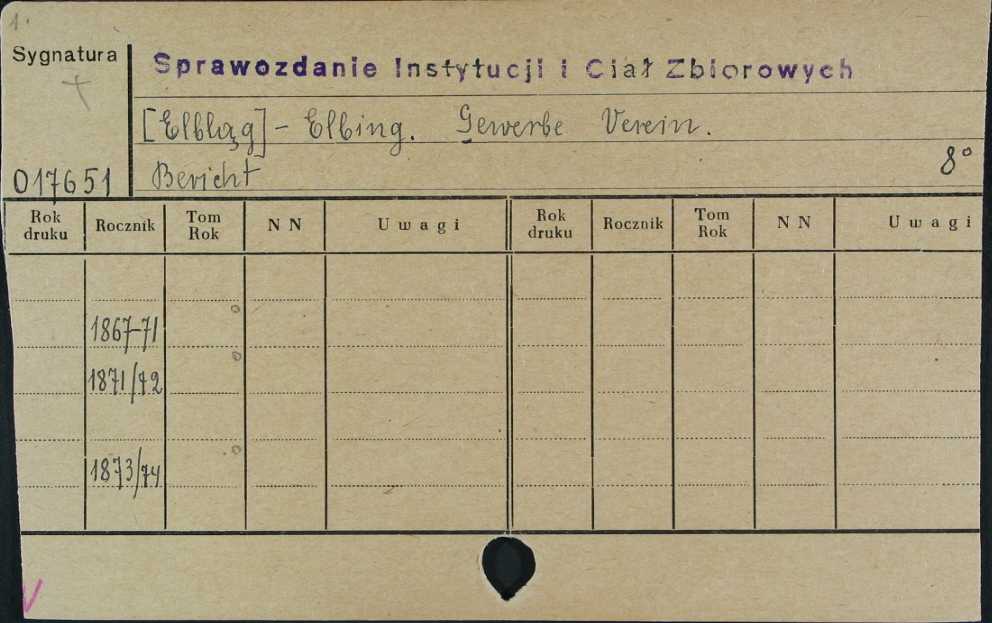 1.
Sygnatura
Sprawozdanie Instytucji i Ciał Zbiorowych
[Elbląg] - Elbing. Gewerbe Verein.
8°
017651 Bericht
Rok druku Rocznik Tom Rok N N Uwagi Rok druku Rocznik Tom Rok N N Uwagi
1867-71
1871/72
1873/74